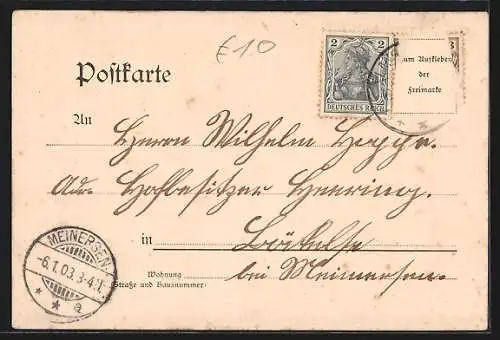 £10
Postkarte
2 2
DEUTSCHES REICH
3
zum Aufkleben
der
Freimarke
An Herrn Wilhelm Heppe.
Adr. Hofbesitzer Heuring.
in Böckelse
Wohnung
(Straße und Hausnummer) bei Meinersen.
MEINERSEN
-6.1.03.3-4.N.
* * a